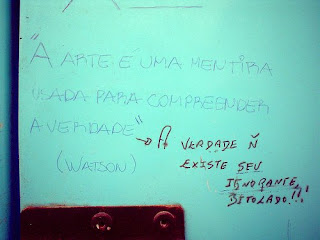 "A ARTE É UMA MENTIRA
USADA PARA COMPREENDER
A VERDADE"
(WATSON)
→ A VERDADE Ñ
EXISTE SEU
IGNORANTE
BITOLADO!!!